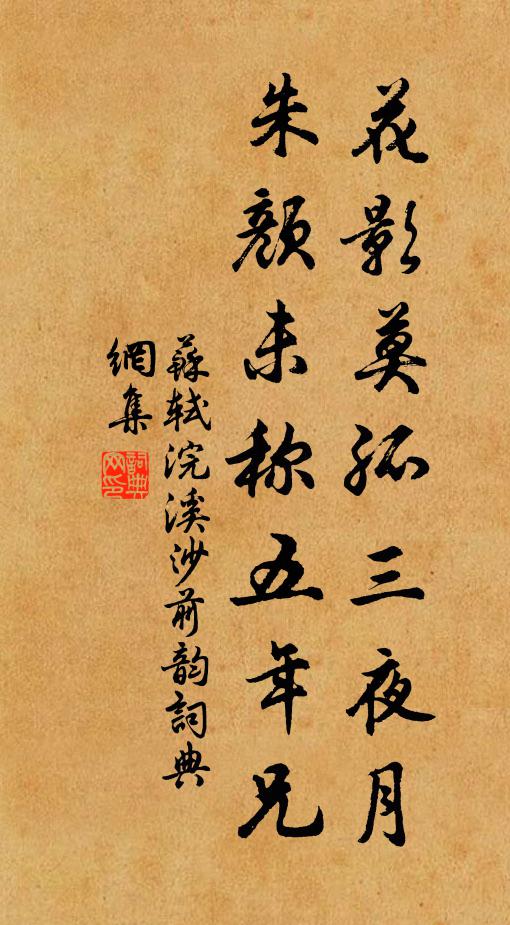 花影莫孤三夜月
朱顏未称五年兄
蘇軾浣溪沙前韵詞典
網集
詞典
网印